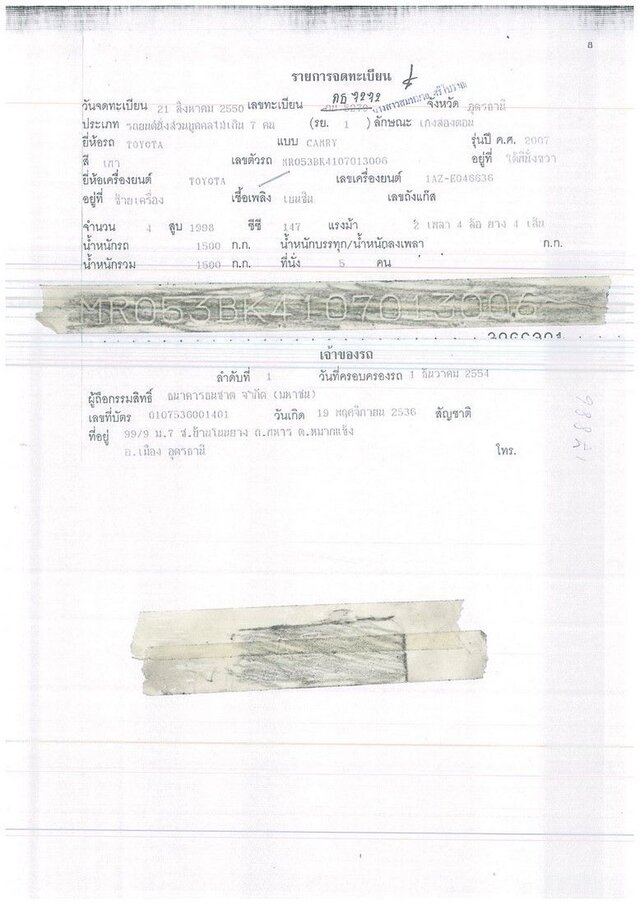 8
รายการจดทะเบียน
วันจดทะเบียน 21 สิงหาคม 2550 เลขทะเบียน จังหวัด อุดรธานี
ประเภท รถยนต์นั่งส่วนบุคคลไม่เกิน 7 คน (รย. 1 ) ลักษณะ เก๋งสองตอน
ยี่ห้อรถ TOYOTA แบบ CAMRY รุ่นปี ค.ศ. 2007
สี เทา เลขตัวรถ MR053BK4107013006 อยู่ที่ ใต้ที่นั่งขวา
ยี่ห้อเครื่องยนต์ TOYOTA เลขเครื่องยนต์ 1AZ-E046636
อยู่ที่ ซ้ายเครื่อง เชื้อเพลิง เบนซิน เลขถังแก๊ส
จำนวน 4 สูบ 1998 ซีซี 147 แรงม้า 2 เพลา 4 ล้อ ยาง 4 เส้น
น้ำหนักรถ 1500 ก.ก. น้ำหนักบรรทุก/น้ำหนักลงเพลา ก.ก.
น้ำหนักรวม 1500 ก.ก. ที่นั่ง 5 คน
MR053BK4107013006
เจ้าของรถ
ลำดับที่ 1 วันที่ครอบครองรถ 1 ธันวาคม 2554
ผู้ถือกรรมสิทธิ์ ธนาคารธนชาต จำกัด (มหาชน)
เลขที่บัตร 0107536001401 วันเกิด 19 พฤศจิกายน 2536 สัญชาติ
ที่อยู่ 99/9 ม.7 ซ.บ้านโนนยาง ถ.ทหาร ต.หมากแข้ง
อ.เมือง อุดรธานี โทร.